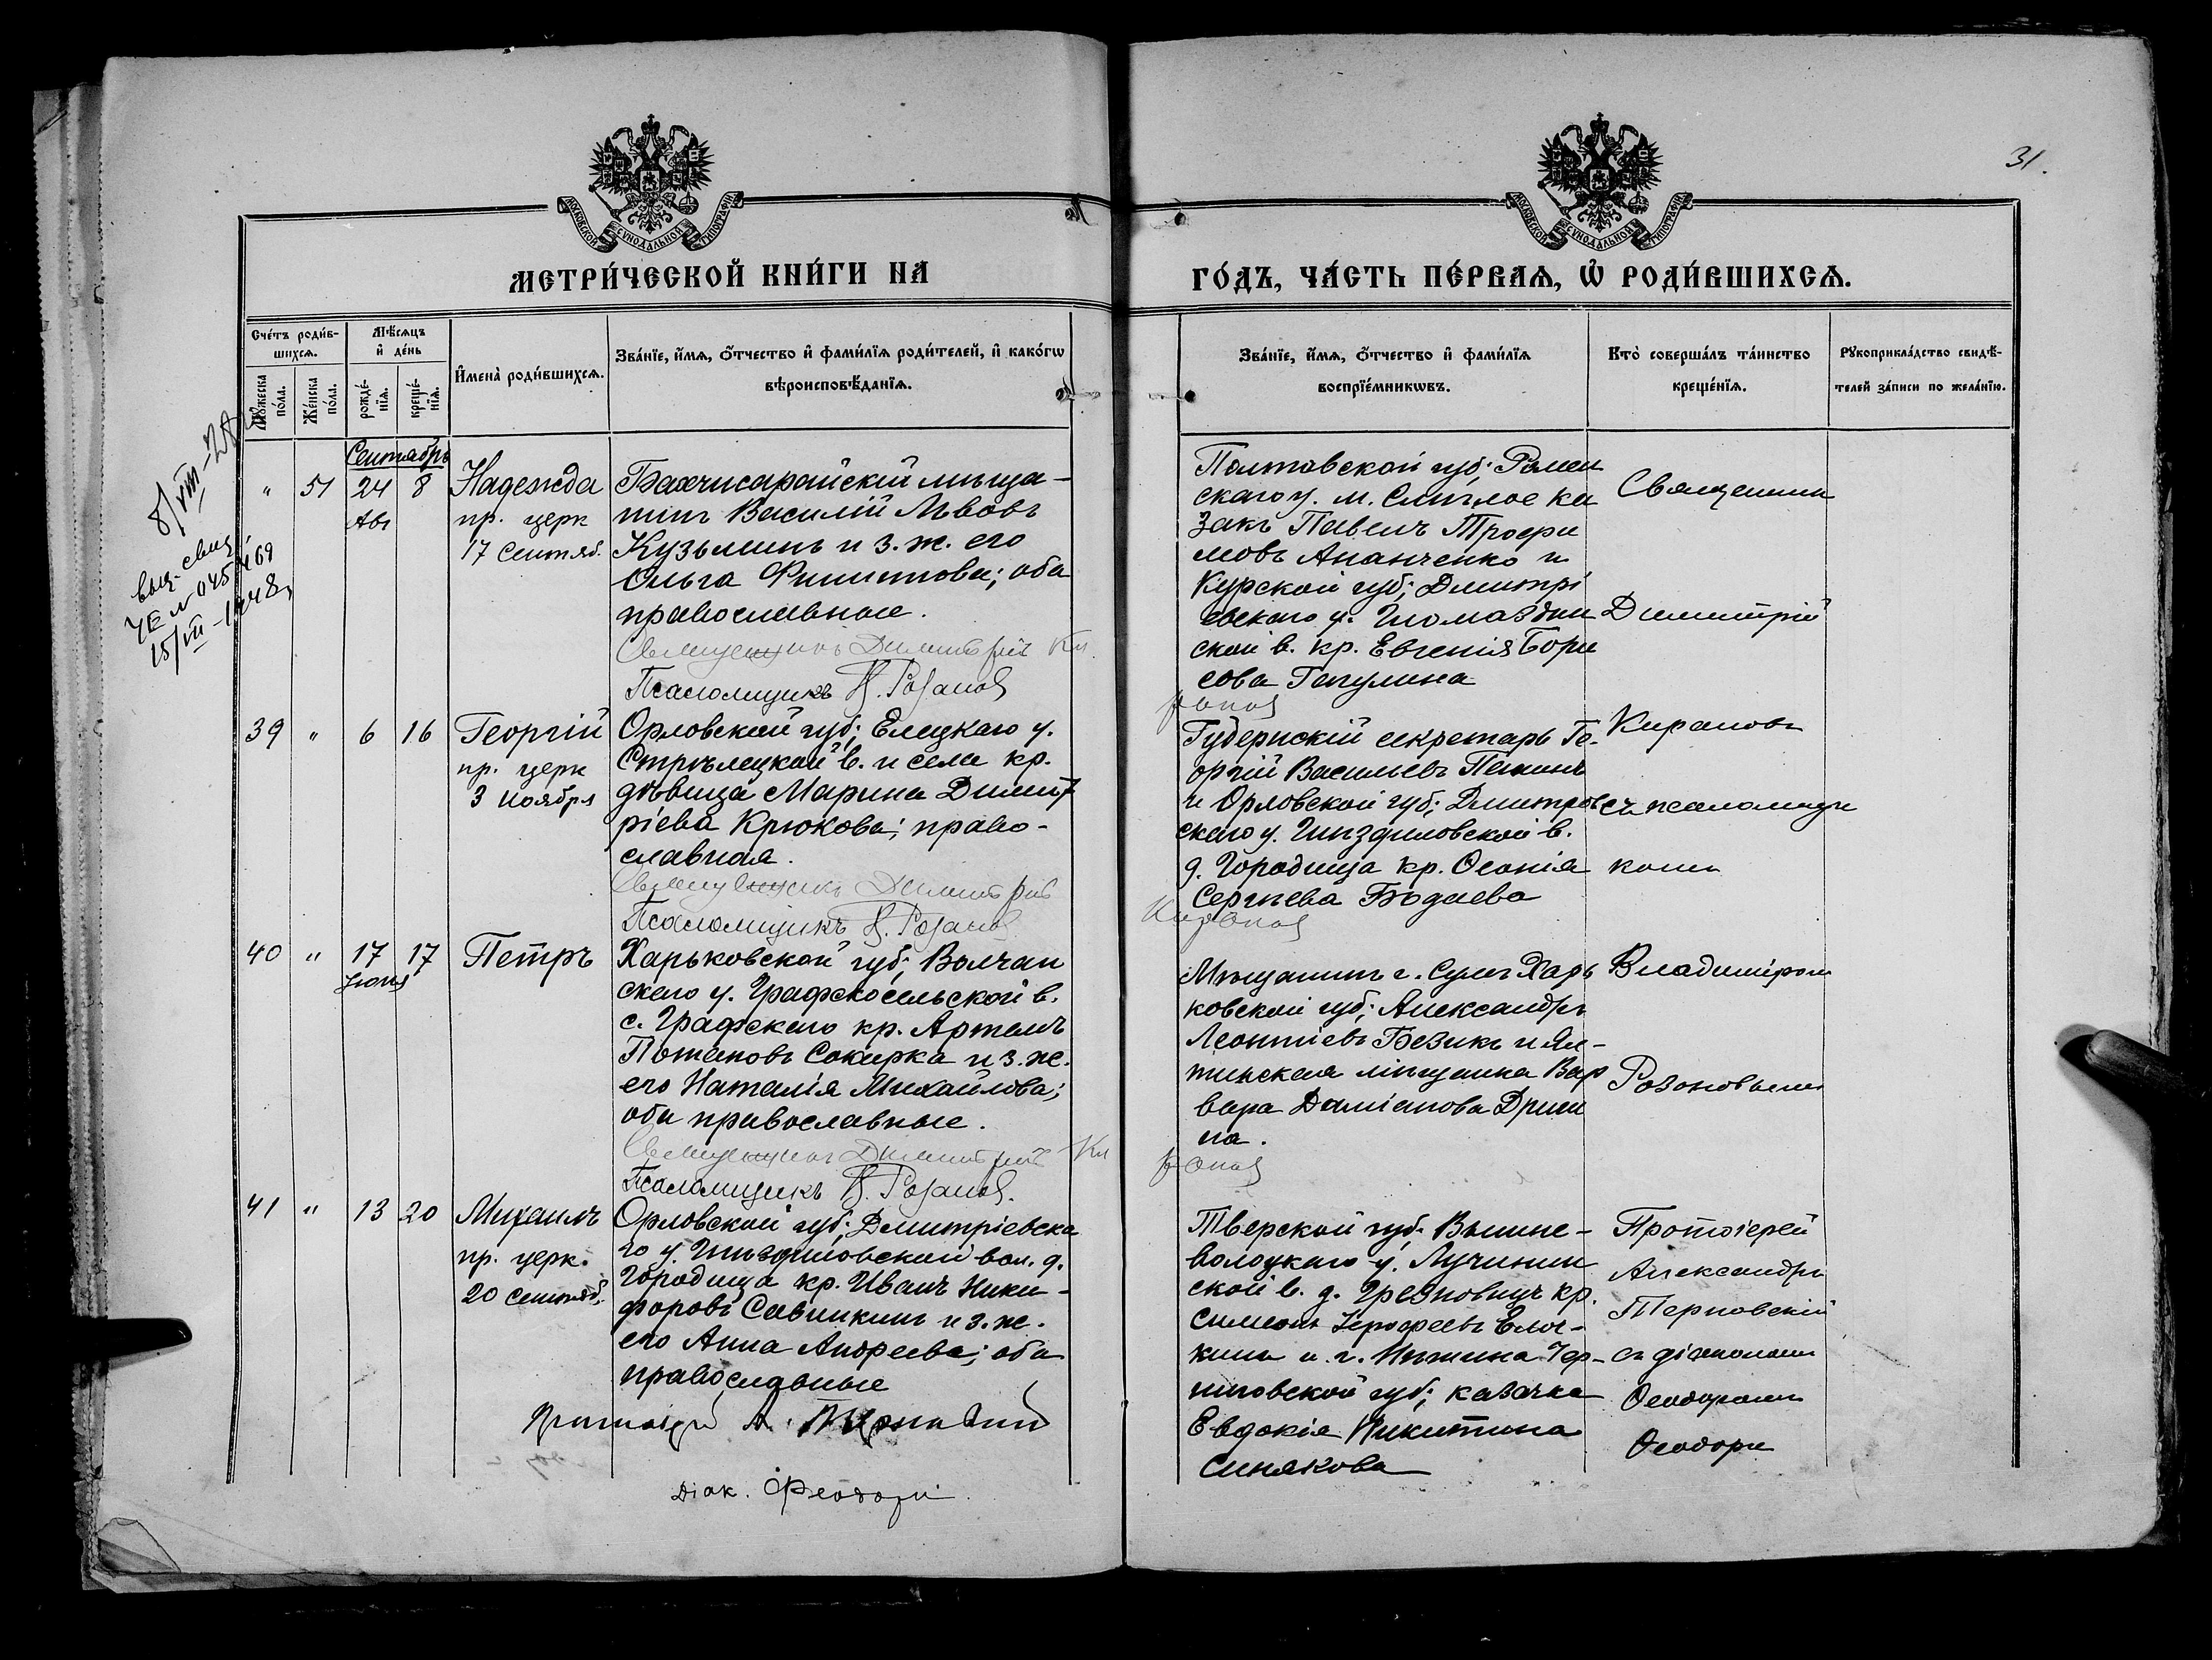 31.
МОСКОВСКОЙ СѴНОДАЛЬНОЙ ТИПОГРАФІИ
МОСКОВСКОЙ СѴНОДАЛЬНОЙ ТИПОГРАФІИ
МЕТРИ́ЧЕСКОЙ КНИ́ГИ НА
ГО́ДЪ, ЧА́СТЬ ПЕ́РВАѦ, Ѡ҆ РОДИ́ВШИХСѦ.
Сче́тъ роди́в-
шихсѧ.
Мꙋ́жеска по́ла.
Же́нска по́ла.
Мѣ́сѧцъ
и҆ де́нь
рожде́-
нїѧ.
креще́-
нїѧ.
И҆мена̀ роди́вшихсѧ.
Зва́нїе, и҆́мѧ, ѻ҆́тчество и҆ фами́лїѧ роди́телей, и҆ како́гѡ
вѣроисповѣ́данїѧ.
Зва́нїе, и҆́мѧ, ѻ҆́тчество и҆ фами́лїѧ
воспрїе́мникѡвъ.
Кто̀ соверша́лъ та́инство
креще́нїѧ.
Рꙋкоприкла́дство свидѣ́-
телей за́писи по жела́нїю.
Сентябрь
" 51 24 8
Авг
Надежда
пр. церк
17 Сентяб.
Бахчисарайскій мѣща-
нинъ Василій Львовъ
Кузьминъ и з. ж. его
Ольга Филиппова; оба
православные.
Священникъ Димитрій Ки
Псаломщикъ В. Розановъ
рановъ
Полтавской губ; Ромен
скаго у. м. Смѣлое ка
закъ Павелъ Трофи
мовъ Ананченко и
Курской губ; Дмитрі
евскаго у. Гломаздин
ской в. кр. Евгенія Бори
сова Гапулина
Священник
Димитрій
39 " 6 16
Георгій
пр. церк
3 ноября
Орловской губ; Елецкаго у.
Стрѣлецкой в. и села кр.
дѣвица Марина Димит
ріева Крюкова; право-
славная.
Священникъ Димитрій
Псаломщикъ В. Розановъ
Кирановъ
Губернскій секретарь Ге-
оргій Васильевъ
и Орловской губ; Дмитров
скаго у. Гнѣздиловской в.
д. Городища кр. Ѳеонія
Сергѣева Бодаева
Кирановъ
съ псаломщи
комъ
40 " 17 17
Іюня
Петръ
Харьковской губ; Волчан
скаго у. Графскосельской в.
с. Графскаго кр. Артемъ
Потаповъ Сокирка и з. ж.
его Наталія Михайлова;
оба православные.
Священникъ Димитрій Ки
Псаломщикъ В. Розановъ.
рановъ
Мѣщанинъ г. Сумъ Харь
ковской губ; Александръ
Леонтіевъ Безикъ и Ял-
тинская мѣщанка Вар
вара Даміанова
на.
Владиміром
Розановымъ
41 " 13 20
Михаилъ
пр. церк.
20 сентяб.
Орловской губ; Дмитріевска
го у. Гнѣздиловской вол. д.
Городища кр. Иванъ Ники-
форовъ Савишкинъ и з. ж.
его Анна Андреева; оба
православные
Протоіерей А. Терновскій
Діак. Феодори.
Тверской губ. Вышне-
волоцкаго у. Лучинин
ской в. д. кр.
Симеонъ Іерофеевъ Елоч-
кинъ и г. Нѣжина Чер-
ниговской губ; казачка
Евдокія Никитина
Синякова
Протоіерей
Александръ
Терновскій
съ діакономъ
Ѳеодоромъ
Ѳеодори
выд. свид.
ЧЕ № 045469
15/VII-1948